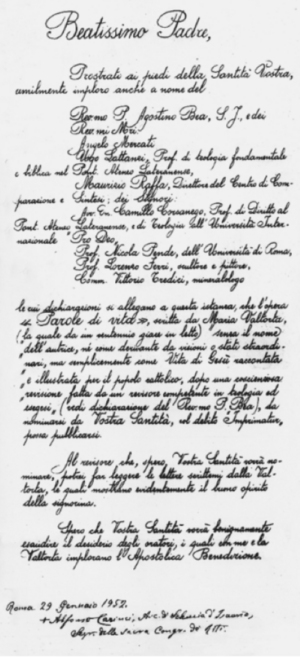 Beatissimo Padre,
Prostrati ai piedi della Santità Vostra,
umilmente imploro anche a nome del
Rev.mo P. Agostino Bea, S. J., e dei
Rev.mi Mon.
Angelo Mercati
Ugo Lattanzi, Prof. di teologia fondamentale
e biblica nel Pont. Ateneo Lateranense,
Maurizio Raffa, Direttore del Centro di Com-
parazione e Sintesi; dei Signori:
Avv. Camillo Corsanego, Prof. di Diritto al
Pont. Ateneo Lateranense, e di Teologia all'Università Inter-
nazionale "Pro Deo,
Prof. Nicola Pende, dell'Università di Roma,
Prof. Lorenzo Ferri, scultore e pittore,
Comm. Vittorio Tredici, mineralogo
le cui dichiarazioni si allegano a questa istanza, che l'opera
« Parole di vita », scritta da Maria Valtorta,
(la quale da un ventennio giace in letto) senza il nome
dell'autrice, nè come derivante da visioni o stati straordi-
nari, ma semplicemente come Vita di Gesù raccontata
e illustrata per il popolo cattolico, dopo una coscienziosa
revisione fatta da un revisore competente in teologia ed
esegesi, (vedi dichiarazione del Rev.mo P. Bea), da
nominarsi da Vostra Santità, col debito Imprimatur,
possa pubblicarsi.
Al revisore che, spero, Vostra Santità vorrà no-
minare, potrei far leggere le lettere scrittemi dalla Val-
torta, le quali mostrano evidentemente il buono spirito
della signorina.
Spero che Vostra Santità vorrà benignamente
esaudire il desiderio degli oratori, i quali con me e la
Valtorta implorano l'Apostolica Benedizione.
Roma 29 Gennaio 1952.
+ Alfonso Carinci, Arc. di Seleucia d'Isauria,
Segr. della Sacra Congr. dei Riti.